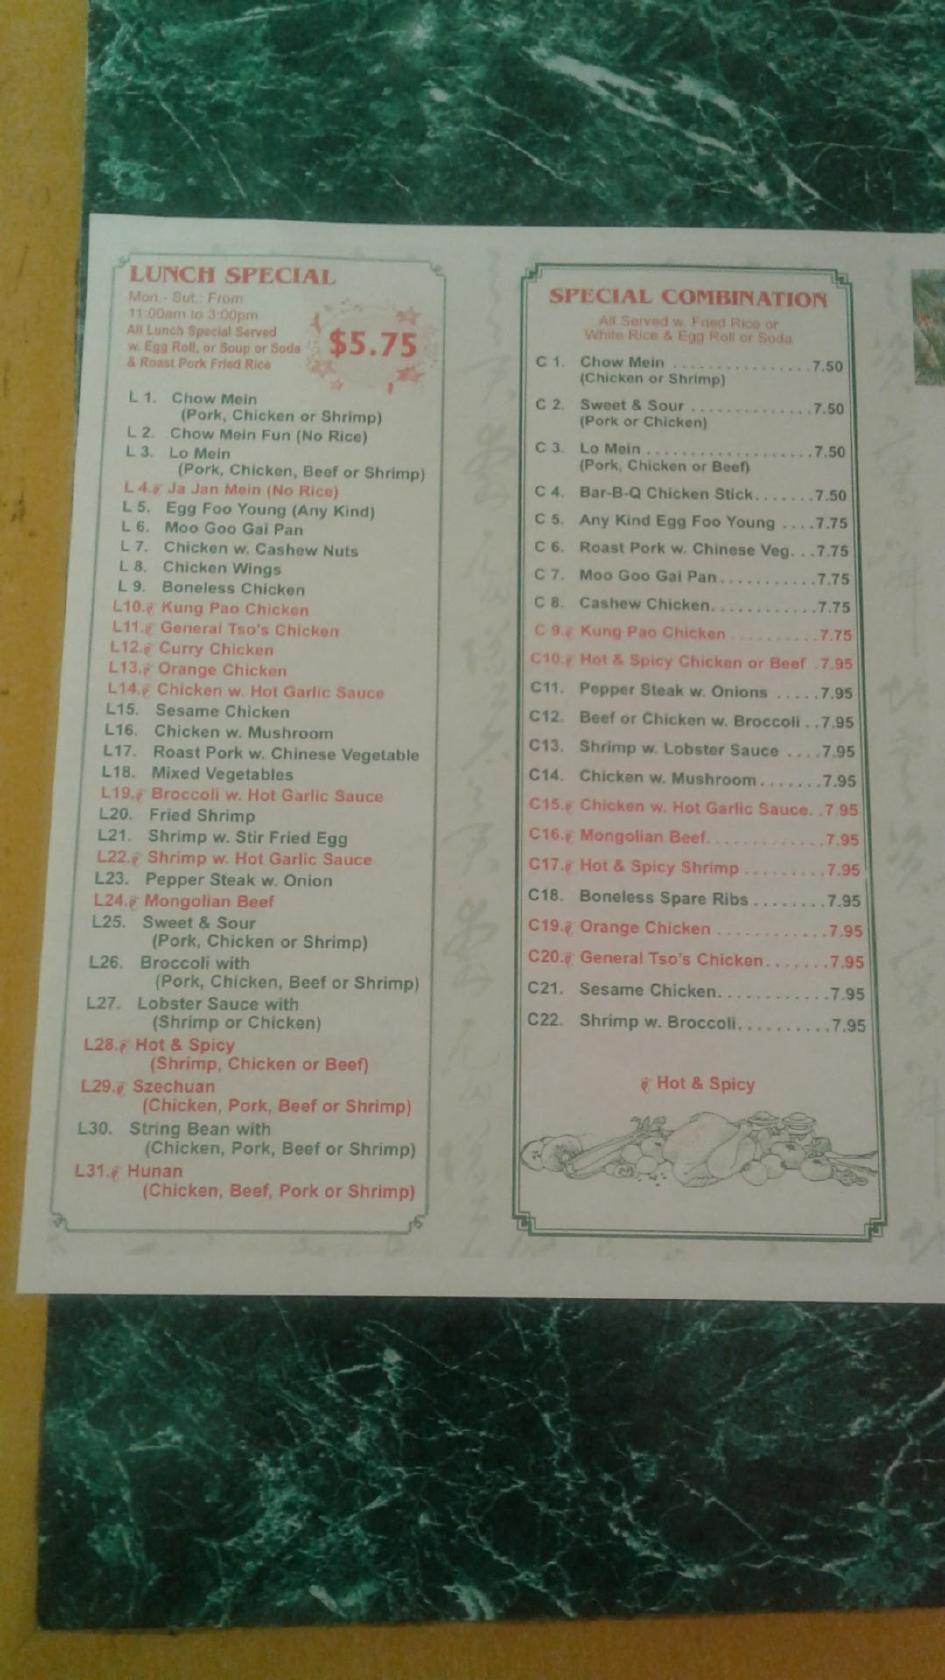 LUNCH SPECIAL
Mon.- Sut.: From
11:00am to 3:00pm
All Lunch Special Served
w. Egg Roll, or Soup or Soda
& Roast Pork Fried Rice
$5.75
L 1. Chow Mein
(Pork, Chicken or Shrimp)
L 2. Chow Mein Fun (No Rice)
L 3. Lo Mein
(Pork, Chicken, Beef or Shrimp)
L 4. Ja Jan Mein (No Rice)
L 5. Egg Foo Young (Any Kind)
L 6. Moo Goo Gai Pan
L 7. Chicken w. Cashew Nuts
L 8. Chicken Wings
L 9. Boneless Chicken
L10. Kung Pao Chicken
L11. General Tso's Chicken
L12. Curry Chicken
L13. Orange Chicken
L14. Chicken w. Hot Garlic Sauce
L15. Sesame Chicken
L16. Chicken w. Mushroom
L17. Roast Pork w. Chinese Vegetable
L18. Mixed Vegetables
L19. Broccoli w. Hot Garlic Sauce
L20. Fried Shrimp
L21. Shrimp w. Stir Fried Egg
L22. Shrimp w. Hot Garlic Sauce
L23. Pepper Steak w. Onion
L24. Mongolian Beef
L25. Sweet & Sour
(Pork, Chicken or Shrimp)
L26. Broccoli with
(Pork, Chicken, Beef or Shrimp)
L27. Lobster Sauce with
(Shrimp or Chicken)
L28. Hot & Spicy
(Shrimp, Chicken or Beef)
L29. Szechuan
(Chicken, Pork, Beef or Shrimp)
L30. String Bean with
(Chicken, Pork, Beef or Shrimp)
L31. Hunan
(Chicken, Beef, Pork or Shrimp)
SPECIAL COMBINATION
All Served w. Fried Rice or
White Rice & Egg Roll or Soda
C 1. Chow Mein ................7.50
(Chicken or Shrimp)
C 2. Sweet & Sour ..............7.50
(Pork or Chicken)
C 3. Lo Mein....................7.50
(Pork, Chicken or Beef)
C 4. Bar-B-Q Chicken Stick.......7.50
C 5. Any Kind Egg Foo Young ....7.75
C 6. Roast Pork w. Chinese Veg. ..7.75
C 7. Moo Goo Gai Pan...........7.75
C 8. Cashew Chicken............7.75
C 9. Kung Pao Chicken ..........7.75
C10. Hot & Spicy Chicken or Beef .7.95
C11. Pepper Steak w. Onions .....7.95
C12. Beef or Chicken w. Broccoli ..7.95
C13. Shrimp w. Lobster Sauce ....7.95
C14. Chicken w. Mushroom.......7.95
C15. Chicken w. Hot Garlic Sauce. .7.95
C16. Mongolian Beef.............7.95
C17. Hot & Spicy Shrimp .........7.95
C18. Boneless Spare Ribs ........7.95
C19. Orange Chicken ............7.95
C20. General Tso's Chicken.......7.95
C21. Sesame Chicken............7.95
C22. Shrimp w. Broccoli..........7.95
Hot & Spicy